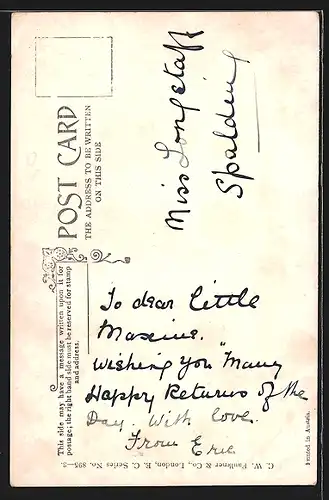 POST CARD
THE ADDRESS TO BE WRITTEN
ON THIS SIDE
This side may have a message written upon it for
postage; the right hand side must be reserved for stamp
and address.
Miss Longstaff
Spalding
To dear little
Maxine.
Wishing you "Many
Happy Returns of the
Day. With love
From Eric
C. W. Faulkner & Co., London, E. C. Series No. 895-3.
Printed in Austria.